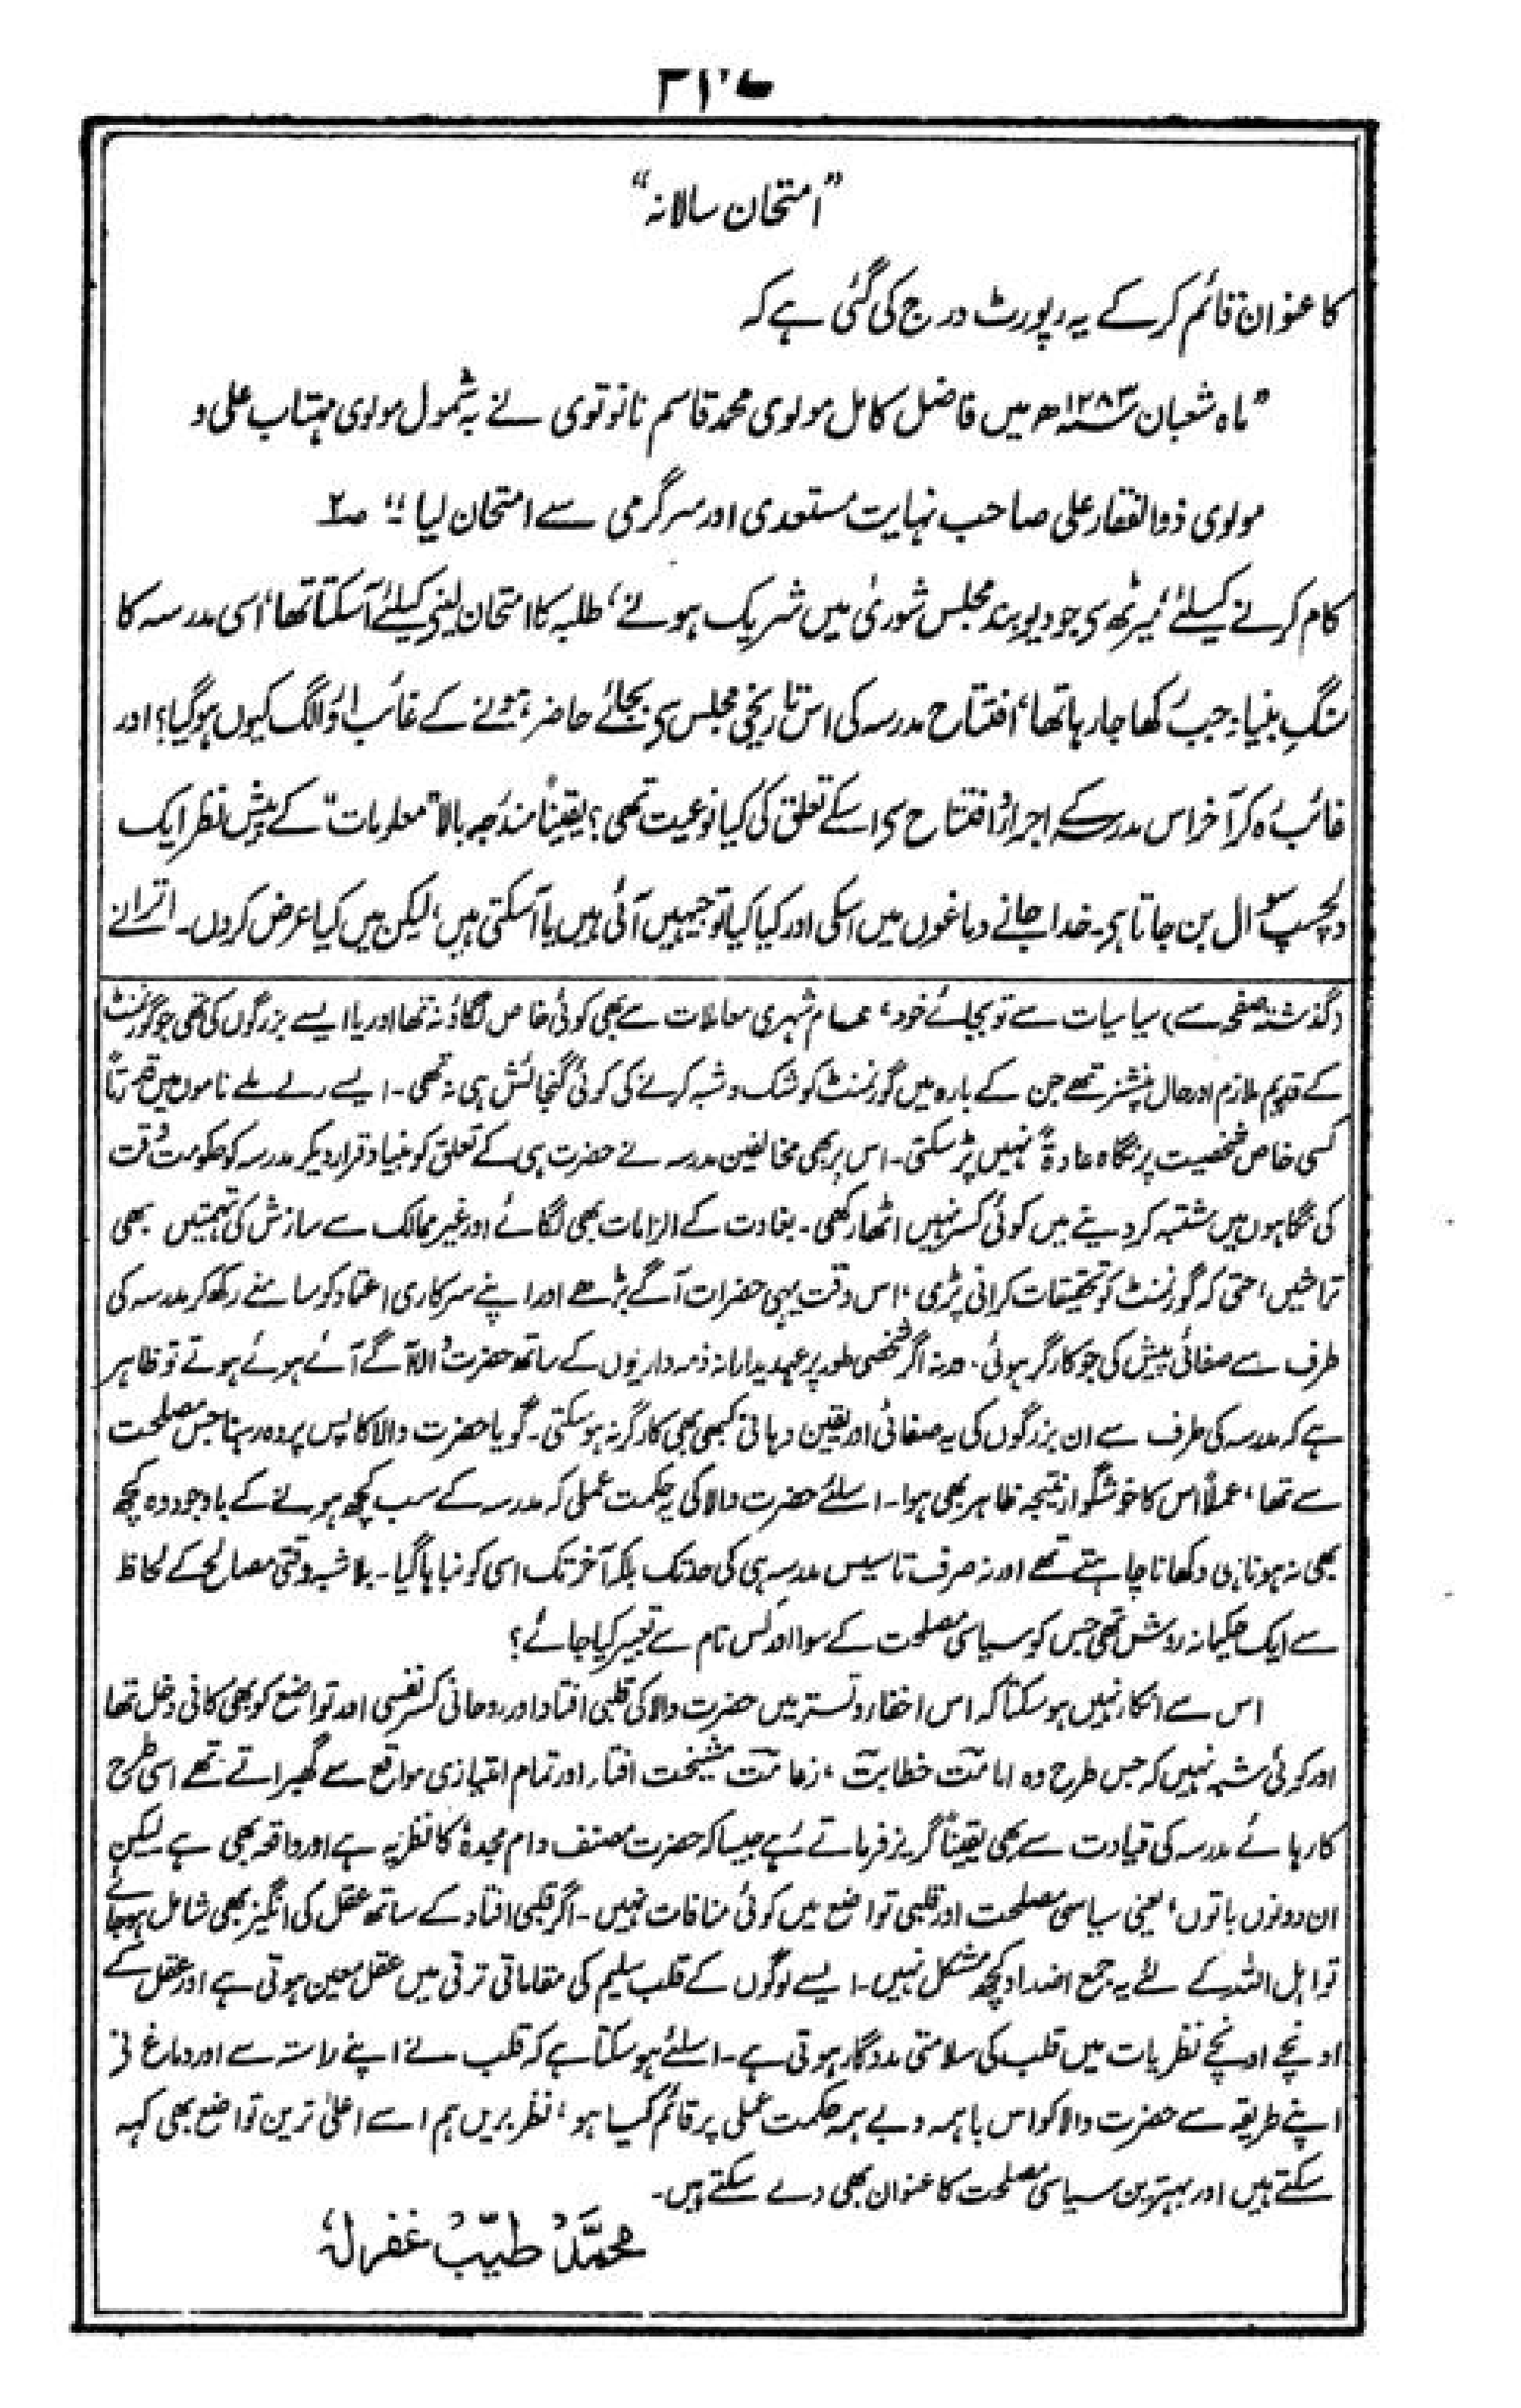 ”امتحان سالانہ“
کا عنوان قائم کر کے یہ رپورٹ درج کی گئی ہے کہ
”ماہ شعبان ۱۲۸۳ھ میں فاضل کامل مولوی محمد قاسم نانوتوی نے بہ شمول مولوی مہتاب علی و
مولوی ذوالفقار علی صاحب نہایت مستعدی اور سرگرمی سے امتحان لیا“ ص۲
کام کرنے کیلئے، میرٹھ سے جو دیوبند مجلس شوریٰ میں شریک ہونے، طلبہ کا امتحان لینے کیلئے آسکتا تھا، اسی مدرسہ کا
سنگِ بنیاد جب رکھا جا رہا تھا، افتتاح مدرسہ کی اس تاریخی مجلس سے بجائے حاضر ہونے کے غائب اور الگ کیوں ہوگیا؟ اور
غائب رہ کر آخر اس مدرسہ کے اجراء و افتتاح سے اسکے تعلق کی کیا نوعیت تھی؟ یقیناً مندرجہ بالا ”معلومات“ کے پیش نظر ایک
دلچسپ سوال بن جاتا ہے۔ خدا جانے دماغوں میں اسکی اور کیا کیا توجیہیں آئی ہیں یا آسکتی ہیں، لیکن میں کیا عرض کروں۔ اترانے
(گذشتہ صفحہ سے) سیاسیات سے تو بجائے خود، عام شہری معاملات سے بھی کوئی خاص لگاؤ نہ تھا اور یا ایسے بزرگوں کی تھی جو گورنمنٹ
کے قدیم ملازم اور حال پنشنر تھے جن کے بارہ میں گورنمنٹ کو شک و شبہ کرنے کی کوئی گنجائش ہی نہ تھی۔ ایسے رلے ملے ناموں میں
کسی خاص شخصیت پر نگاہ عادۃً نہیں پڑ سکتی۔ اس پر بھی مخالفین مدرسہ نے حضرت ہی کے تعلق کو بنیاد قرار دیکر مدرسہ کو حکومت وقت
کی نگاہوں میں مشتبہ کر دینے میں کوئی کسر نہیں اٹھا رکھی۔ بغاوت کے الزامات بھی لگائے اور غیر ممالک سے سازش کی تہمتیں بھی
تراشیں، حتی کہ گورنمنٹ کو تحقیقات کرانی پڑی، اس وقت یہی حضرات آگے بڑھے اور اپنے سرکاری اعتماد کو سامنے رکھ کر مدرسہ کی
طرف سے صفائی پیش کی جو کارگر ہوئی۔ ورنہ اگر شخصی طور پر عہدیدارانہ ذمہ داریوں کے ساتھ حضرت والا آگے آئے ہوئے ہوتے تو ظاہر
ہے کہ مدرسہ کی طرف سے ان بزرگوں کی یہ صفائی اور یقین دہانی کبھی بھی کارگر نہ ہو سکتی۔ گویا حضرت والا کا پس پردہ رہنا جس مصلحت
سے تھا، عملاً اس کا خوشگوار نتیجہ ظاہر بھی ہوا۔ اسلئے حضرت والا کی یہ حکمت عملی کہ مدرسہ کے سب کچھ ہونے کے باوجود وہ کچھ
بھی نہ ہونا ہی دکھانا چاہتے تھے اور نہ صرف تاسیس مدرسہ ہی کی حد تک بلکہ آخر تک اسی کو نباہا گیا۔ بلاشبہ وقتی مصالح کے لحاظ
سے ایک حکیمانہ روش تھی جس کو سیاسی مصلحت کے سوا اور کس نام سے تعبیر کیا جائے؟
اس سے انکار نہیں ہو سکتا کہ اس اخفاء و تستر میں حضرت والا کی قلبی افتاد اور روحانی کسر نفسی اور تواضع کو بھی کافی دخل تھا
اور کوئی شبہ نہیں کہ جس طرح وہ امامت خطابت، زعامت مشیخت افتاء اور تمام امتیازی مواقع سے گھبراتے تھے اسی طرح
کارہائے مدرسہ کی قیادت سے بھی یقیناً گریز فرماتے رہے جیسا کہ حضرت مصنف دام مجدہٗ کا نظریہ ہے اور واقعہ بھی ہے لیکن
ان دونوں باتوں، یعنی سیاسی مصلحت اور قلبی تواضع میں کوئی منافات نہیں۔ اگر قلبی افتاد کے ساتھ عقل کی انگیز بھی شامل ہو جائے
تو اہل اللہ کے لئے یہ جمع اضداد کچھ مشکل نہیں۔ ایسے لوگوں کے قلب سلیم کی مقاماتی ترقی میں عقل معین ہوتی ہے اور عقل کے
اونچے اونچے نظریات میں قلب کی سلامتی مددگار ہوتی ہے۔ اسلئے ہو سکتا ہے کہ قلب نے اپنے راستہ سے اور دماغ نے
اپنے طریقہ سے حضرت والا کو اس باہمہ و بے ہمہ حکمت عملی پر قائم کیا ہو، نظر بریں ہم اسے اعلیٰ ترین تواضع بھی کہہ
سکتے ہیں اور بہترین سیاسی مصلحت کا عنوان بھی دے سکتے ہیں۔
محمد طیب غفرلہٗ